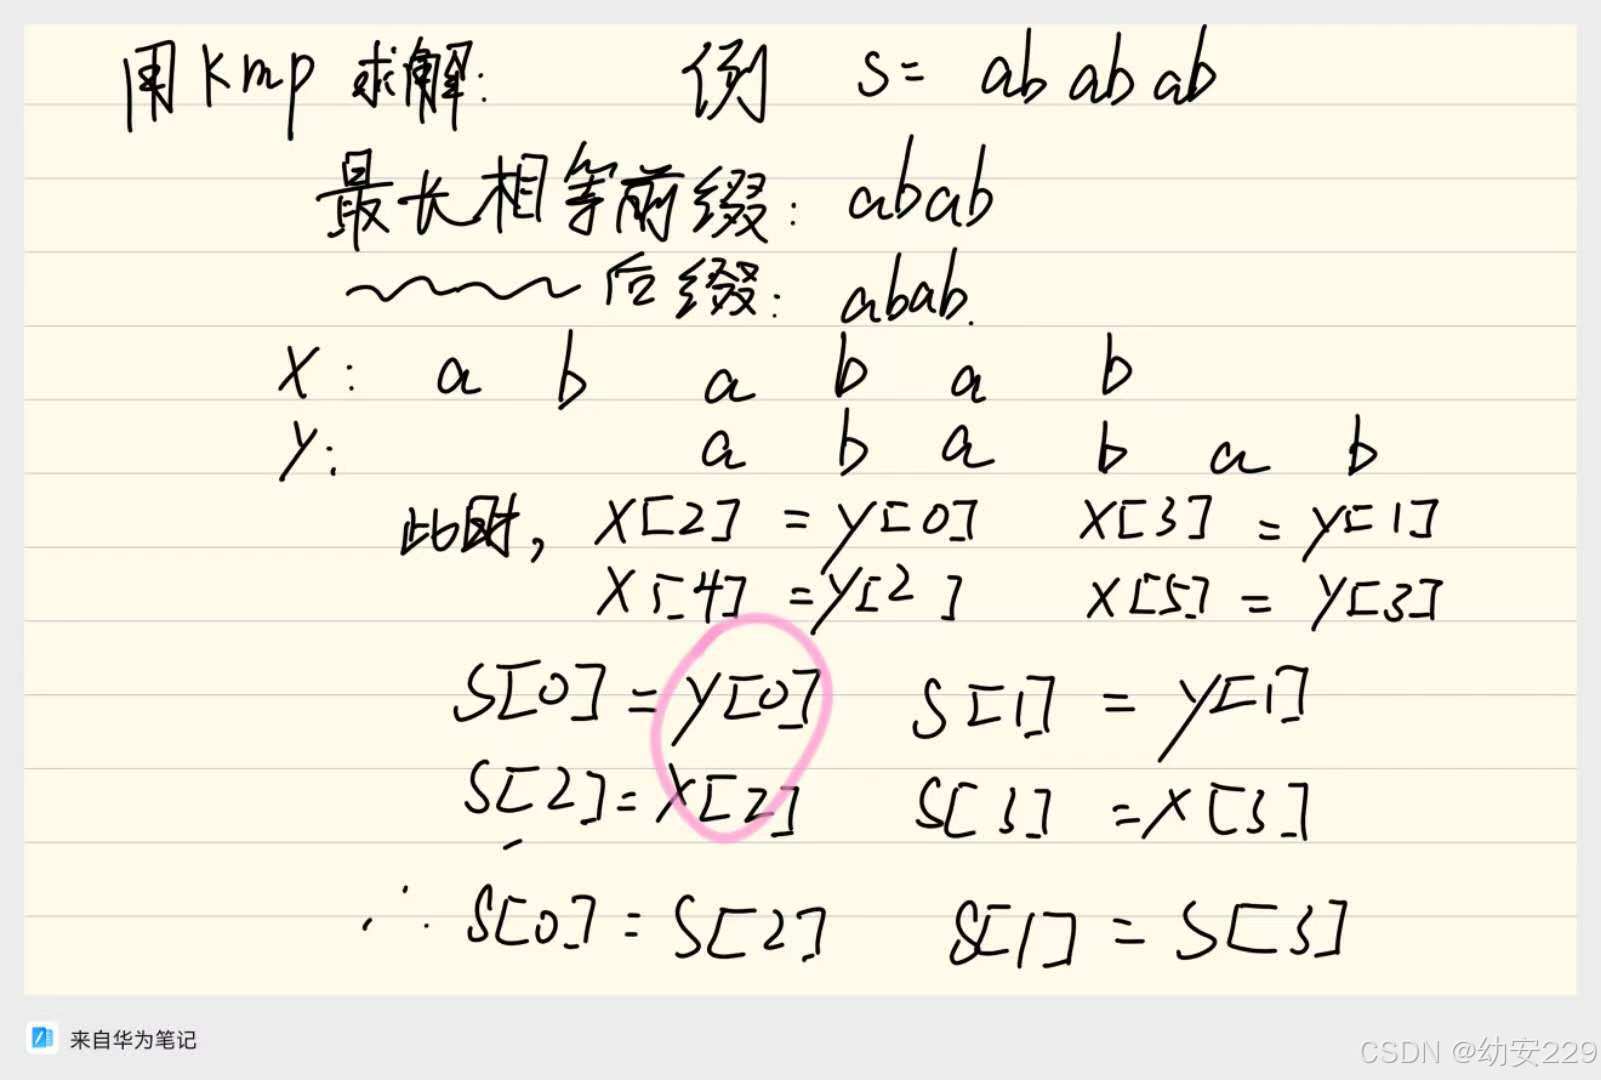 用Kmp求解: 例 S= ababab
最长相等前缀: abab
~~~~后缀: abab.
X: a b a b a b
Y: a b a b a b
此时, X[2] = Y[0] X[3] = Y[1]
X[4] = Y[2] X[5] = Y[3]
S[0] = Y[0] S[1] = Y[1]
S[2] = X[2] S[3] = X[3]
∴ S[0] = S[2] S[1] = S[3]
来自华为笔记
CSDN @幼安229